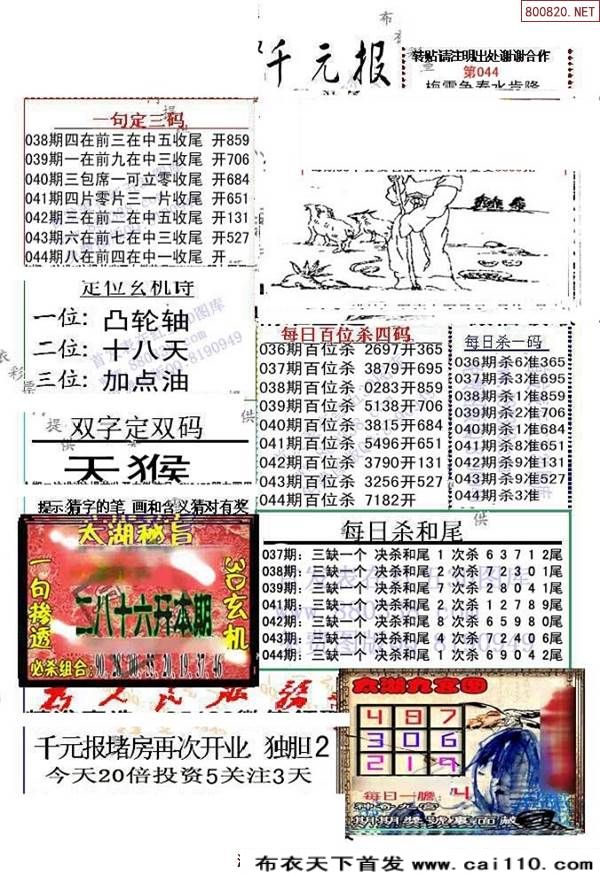 800820.NET
千元报
转贴请注明出处谢谢合作
第044
一句定三码
038期四在前三在中五收尾 开859
039期一在前九在中三收尾 开706
040期三包席一可立零收尾 开684
041期四片零片三一片收尾 开651
042期三在前二在中五收尾 开131
043期六在前七在中三收尾 开527
044期八在前四在中一收尾 开
定位玄机诗
一位: 凸轮轴
二位: 十八天
三位: 加点油
每日百位杀四码
036期百位杀 2697开365
037期百位杀 3879开695
038期百位杀 0283开859
039期百位杀 5138开706
040期百位杀 3815开684
041期百位杀 5496开651
042期百位杀 3790开131
043期百位杀 3256开527
044期百位杀 7182开
每日杀一码
036期杀6准365
037期杀3准695
038期杀1准859
039期杀2准706
040期杀1准684
041期杀8准651
042期杀9准131
043期杀3准527
044期杀3准
双字定双码
天猴
提示:猜字的笔 画和含义猜对有奖
太湖秘旨
一句掺透
3D玄机
二八十六开本期
必杀组合:00.28.00.33.20.19.37.46
每日杀和尾
037期: 三缺一个 决杀和尾 1 次杀 6 3 7 1 2尾
038期: 三缺一个 决杀和尾
039期: 三缺一个 决杀和尾 7 次杀 2 8 0 4 1尾
041期: 三缺一个 决杀和尾 2 次杀 1 2 7 8 9尾
042期: 三缺一个 决杀和尾 8 次杀 6 5 9 8 0尾
043期: 三缺一个 决杀和尾 4 次杀
044期: 三缺一个 决杀和尾 1 次杀 6 5 9 0 4尾
千元报堵房再次开业 独胆2
今天20倍投资5关注3天
太湖九宫图
4 8 7
3 0 6
2 1 9
每日一胆: 4
布衣天下首发 www.cai110.com